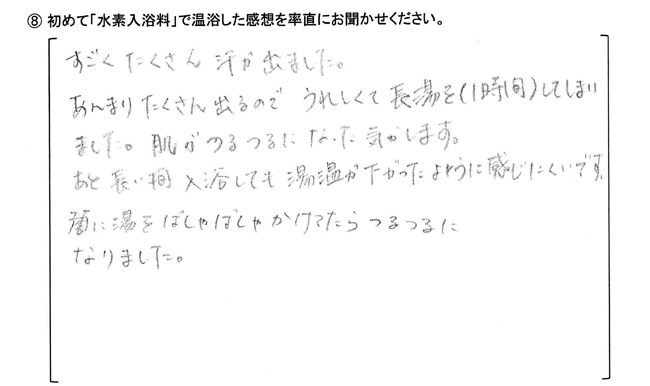 ⑧ 初めて「水素入浴料」で温浴した感想を率直にお聞かせください。
すごくたくさん 汗が出ました。
あんまりたくさん出るので うれしくて長湯を(1時間)してしまい
ました。肌がつるつるになった気がします。
あと長い間 入浴しても湯温が下がったように感じにくいです。
顔に湯をばしゃばしゃかけてたらつるつるに
なりました。